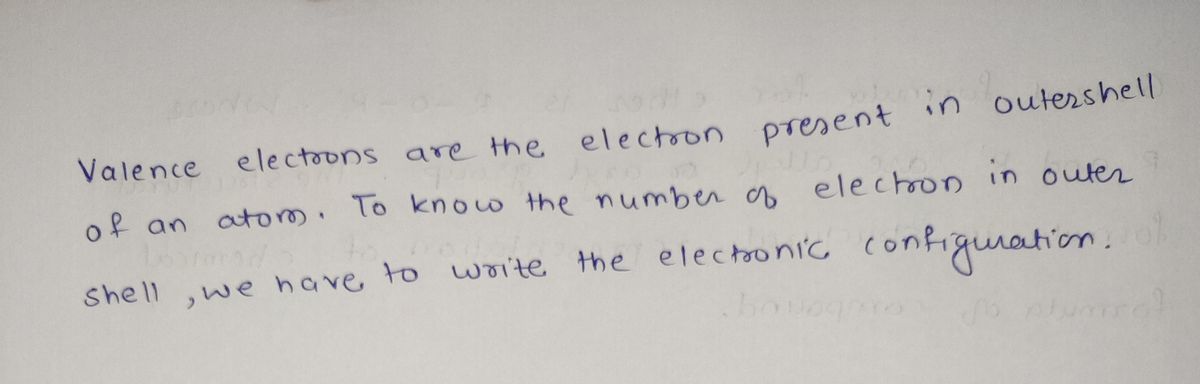 Valence electrons are the electron present in outershell
of an atom. To know the number of electron in outer
shell, we have to write the electronic configuration.